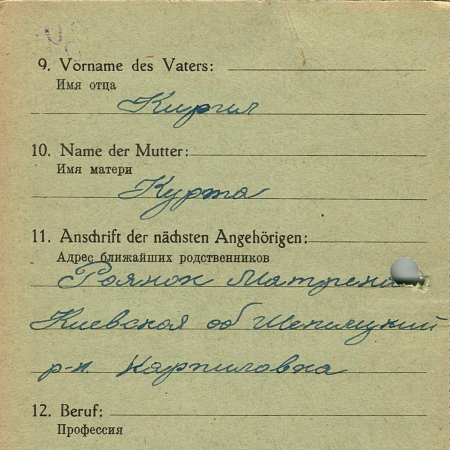 9. Vorname des Vaters:
Имя отца
Кирил
10. Name der Mutter:
Имя матери
Курта
11. Anschrift der nächsten Angehörigen:
Адрес ближайших родственников
Роянок Матрена
Киевская об
р-н. Карпиловка
12. Beruf:
Профессия